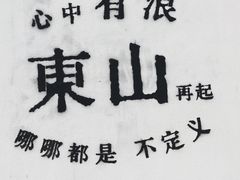 心中有浪
東山再起
哪哪都是 不定义